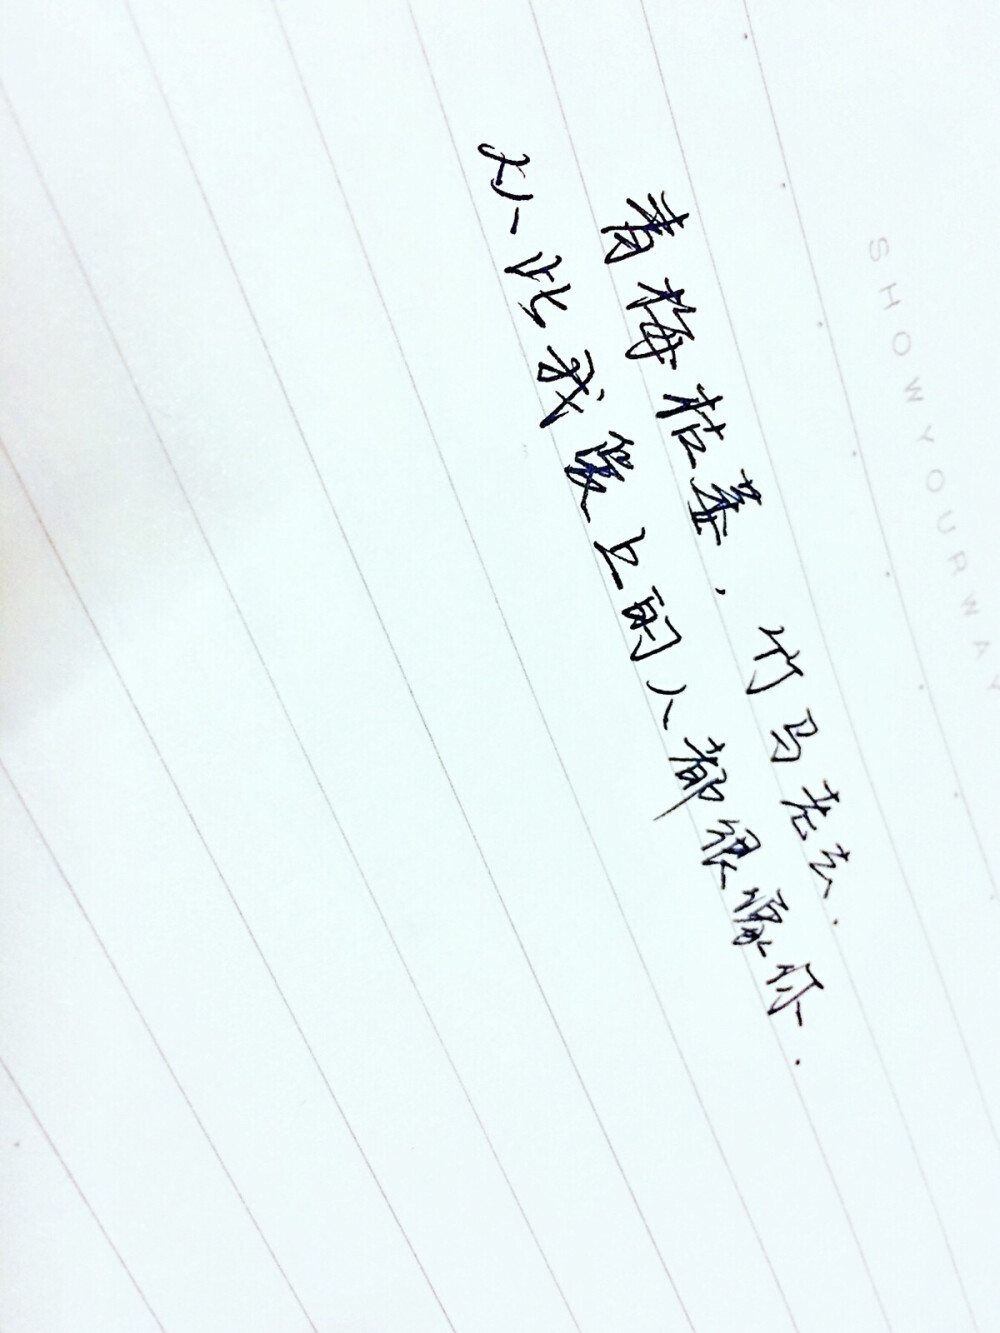 SHOW YOUR WAY
青梅枯萎,竹马老去.
从此我爱上的人都很像你.